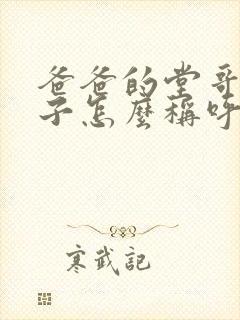 爸爸的堂哥
子怎麼稱呼
寒武記